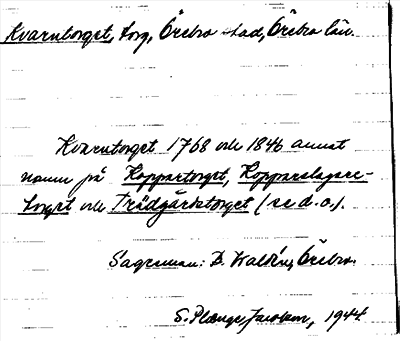 Kvarntorget, torg, Örebro stad, Örebro län.
Kvarntorget 1768 och 1846 annat
namn på Koppartorget, Kopparslagare-
torget och Trädgårdstorget (se d.o.).
Sagesman: B. Waldén, Örebro.
S. Plænge Jacobson, 1944.